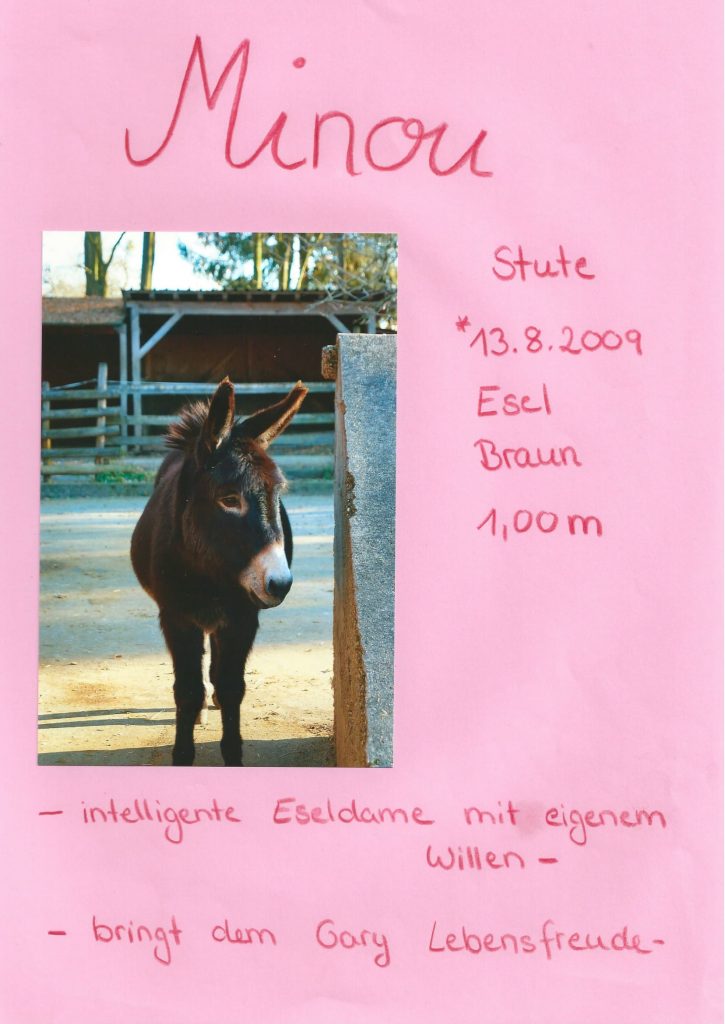 Minou
Stute
*13.8.2009
Esel
Braun
1,00m
- intelligente Eseldame mit eigenem
Willen -
- bringt dem Gary Lebensfreude-